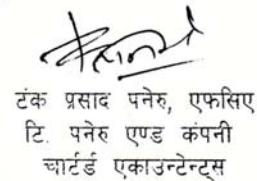 टंक प्रसाद पनेरु, एफसिए
टि. पनेरु एण्ड कंपनी
चार्टर्ड एकाउन्टेन्ट्स